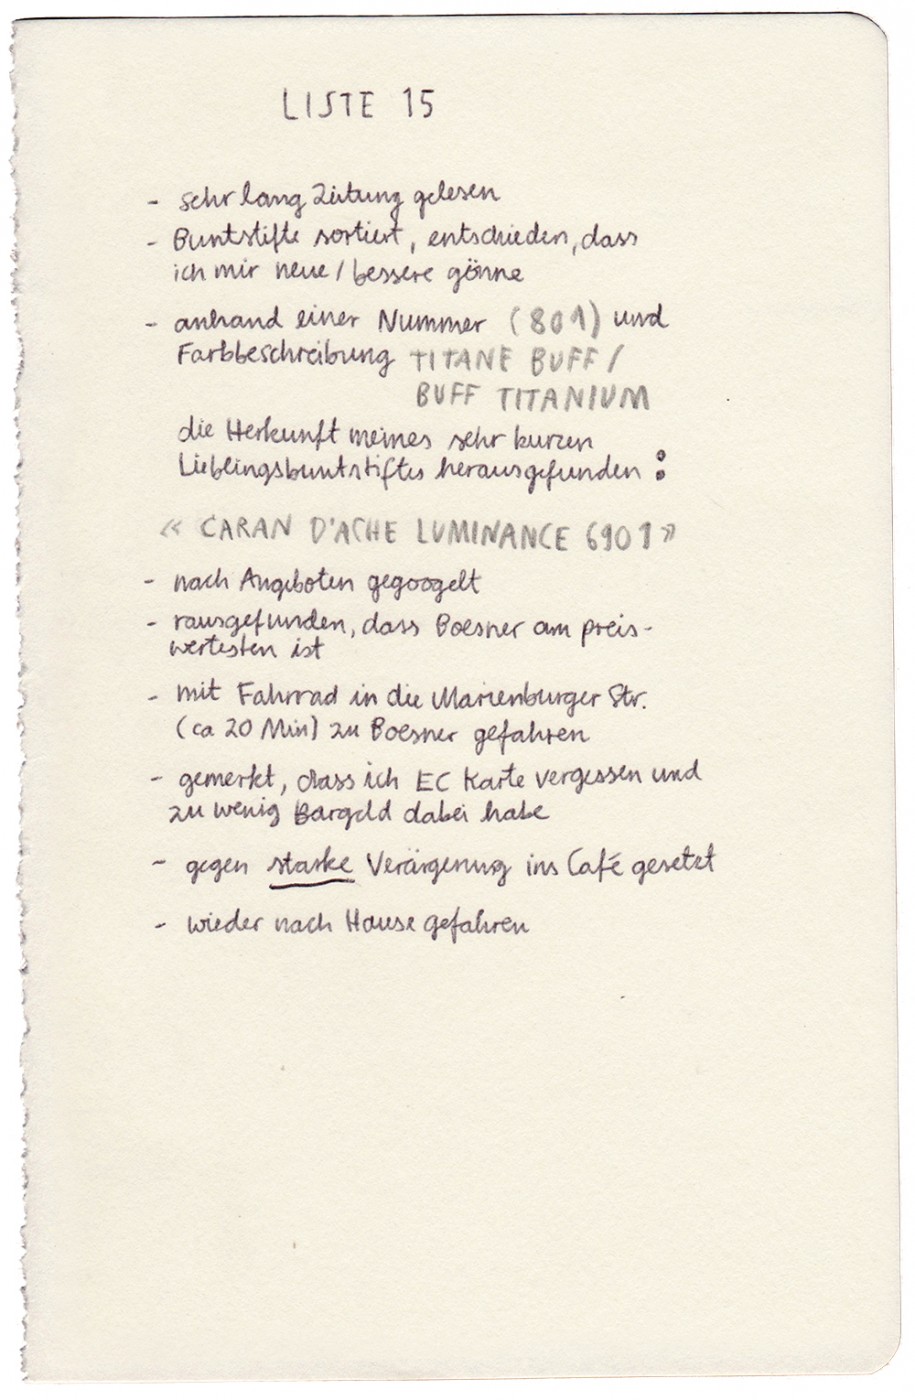 LISTE 15
- sehr lang Zeitung gelesen
- Buntstifte sortiert, entschieden, dass
ich mir neue / bessere gönne
- anhand einer Nummer (801) und
Farbbeschreibung TITANE BUFF /
BUFF TITANIUM
die Herkunft meines sehr kurzen
Lieblingsbuntstiftes herausgefunden:
« CARAN D'ACHE LUMINANCE 6901 »
- nach Angeboten gegoogelt
- rausgefunden, dass Boesner am preis-
wertesten ist
- mit Fahrrad in die Marienburger Str.
(ca 20 Min) zu Boesner gefahren
- gemerkt, dass ich EC Karte vergessen und
zu wenig Bargeld dabei habe
- gegen starke Verärgerung ins Café gesetzt
- wieder nach Hause gefahren